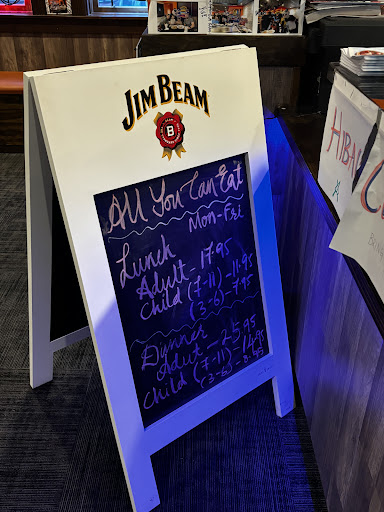 JIM BEAM
B
All You Can Eat
Mon-Fri
Lunch
Adult - 17.95
Child (7-11) - 11.95
(3-6) - 7.95
Dynner
Adult - 25.95
Child (7-11) - 14.95
(3-6) -
HIBA